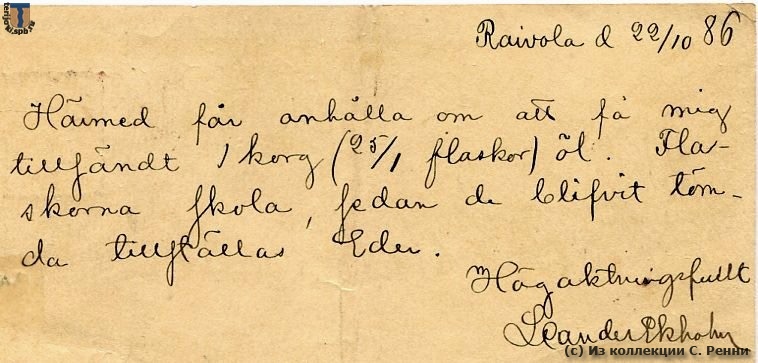 terijoki.spb.ru
Raivola d 22/10 86
Härmed får anhålla om att få mig
tillsändt 1 korg (25/1 flaskor) öl. Fla-
skorna skola, sedan de blifvit töm-
da tillställas Eder.
Högaktningsfullt
Leander Ekholm
(c) Из коллекции С. Ренни